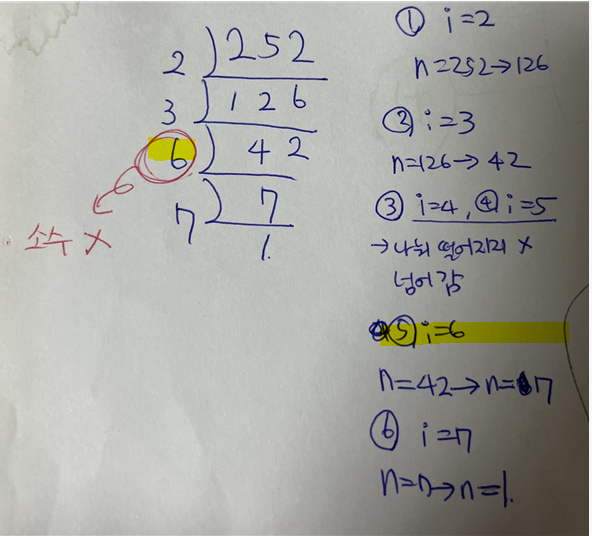 2 ) 252
3 ) 126
6 ) 42
7 ) 7
1.
소수 X
① i=2
n=252→126
② i=3
n=126→42
③ i=4, ④ i=5
→나눠 떨어지지 X
넘어감
⑤ i=6
n=42→n=7
⑥ i=7
n=7→n=1.